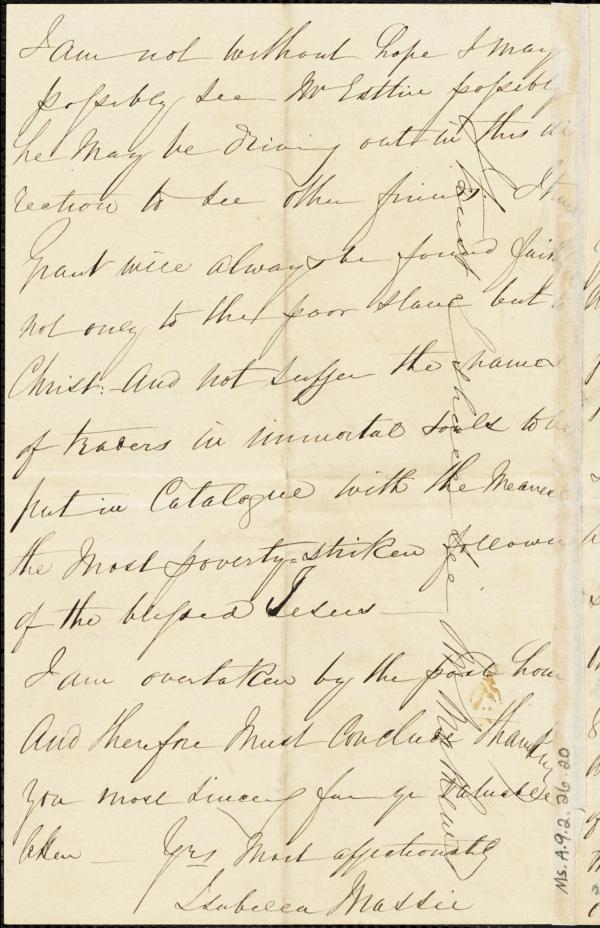 I am not without hope I may
possibly see Mr Estlin possibly
he may be driving out in this di
rection to see other friends. I tru
Grant will always be found faith
not only to the poor slave but to
Christ: And not suffer the names
of traders in immortal souls to be
put in Catalogue with the meanest
the most poverty=striken follower
of the blessed Jesus —
I am overtaken by the post hour
And therefore must conclude thanking
you most sincerely for yr valuable
letter — Yrs most affectionately
Isabella Massie
I trust I shall see
Ms. A.9.2. 26.20